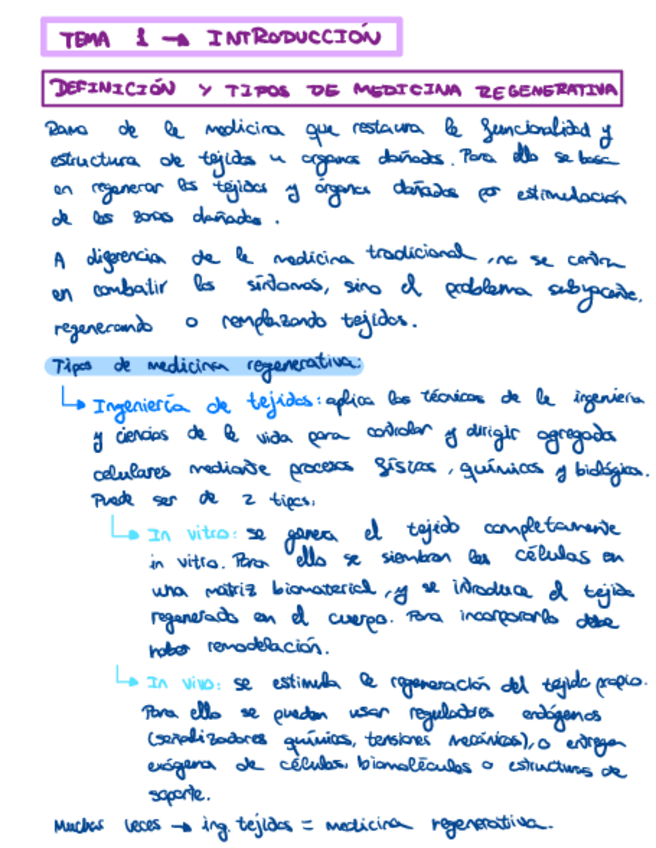 TEMA 1 → INTRODUCCIÓN
DEFINICIÓN Y TIPOS DE MEDICINA REGENERATIVA
Rama de la medicina que restaura la funcionalidad y
estructura de tejidos u órganos dañados. Para ello se basa
en regenerar los tejidos y órganos dañados por estimulación
de las zonas dañadas.
A diferencia de la medicina tradicional, no se centra
en combatir los síntomas, sino el problema subyacente,
regenerando o remplazando tejidos.
Tipos de medicina regenerativa:
Ingeniería de tejidos: aplica las técnicas de la ingeniería
y ciencias de la vida para controlar y dirigir agregados
celulares mediante procesos físicos, químicos y biológicos.
Puede ser de 2 tipos:
In vitro: se genera el tejido completamente
in vitro. Para ello se siembran las células en
una matriz biomaterial, y se introduce el tejido
regenerado en el cuerpo. Para incorporarlo debe
haber remodelación.
In vivo: se estimula la regeneración del tejido propio.
Para ello se pueden usar reguladores endógenos
(señalizadores químicos, tensiones mecánicas), o entrega
exógena de células, biomoléculas o estructuras de
soporte.
Muchas veces → ing. tejidos = medicina regenerativa.